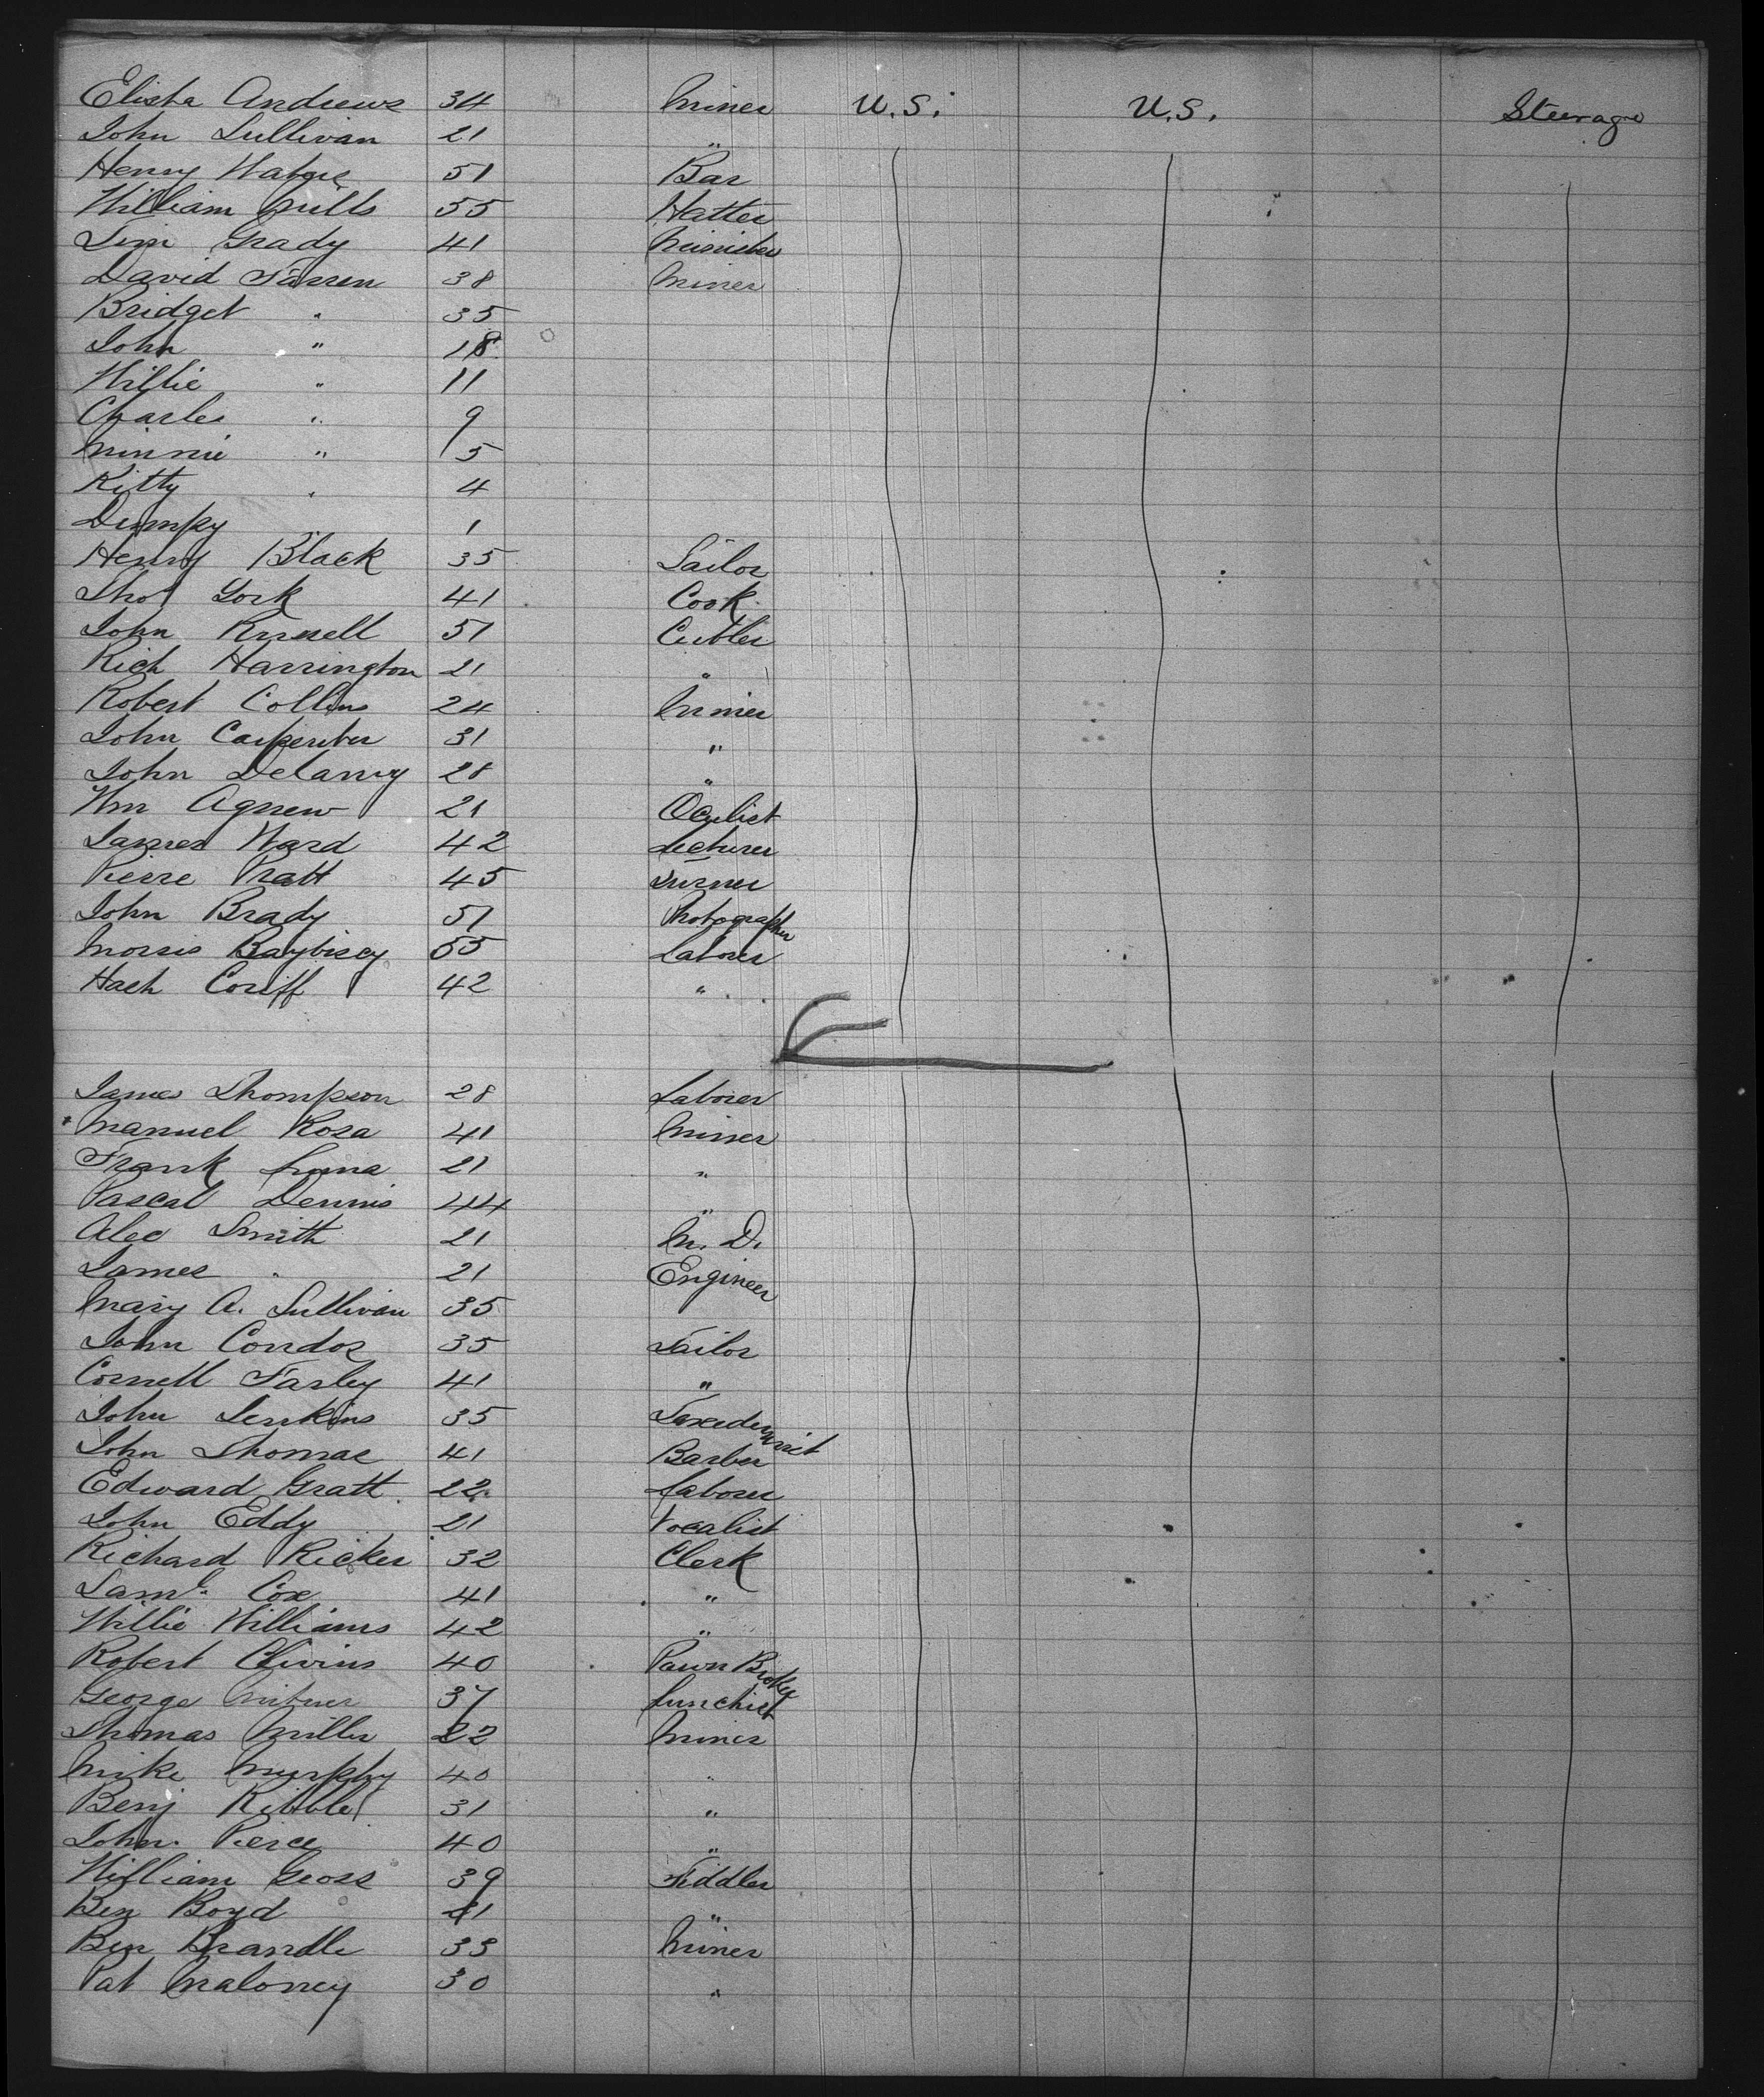 Elisha Andrews 34 Miner U.S. U.S. Steerage
John Sullivan 21 "
Henry 51 Bar
William Mills 55 Hatter
Tim Grady 41 Minister
David Farren 38 Miner
Bridget " 35
John " 18
Willie " 11
Charles " 9
Minnie " 5
Kitty " 4
Dumpy 1
Henry Black 35 Sailor
Thos York 41 Cook
John Russell 51 Cutler
Rich Harrington 21 "
Robert Collins 24 Miner
John Carpenter 31 "
John Delaney 28 "
Wm Agnew 21 Oculist
James Ward 42 Lecturer
Pierre Pratt 45 Turner
John Brady 51 Photographer
Morris 55 Laborer
Coriff 42 "
James Thompson 28 Laborer
Manuel Rosa 41 Miner
Frank 21 "
Pascal Dennis 44 "
Alec Smith 21 M. D.
James " 21 Engineer
Mary A. Sullivan 35
John Condor 35 Tailor
Cornell Farley 41 "
John Jenkins 35 Taxidermist
John Thomas 41 Barber
Edward Gratt 22 Laborer
John Eddy 21 Vocalist
Richard Ricker 32 Clerk
Saml. Cox 41 "
Willie Williams 42 "
Robert 40 Pawn Broker
George 37 Lunchist
Thomas Miller 22 Miner
Mike Murphy 40 "
Benj Kibble 31 "
John Pierce 40 "
William Gross 39 Fiddler
Ben Boyd 21 "
Ben Brandle 33 Miner
Pat Maloney 30 "